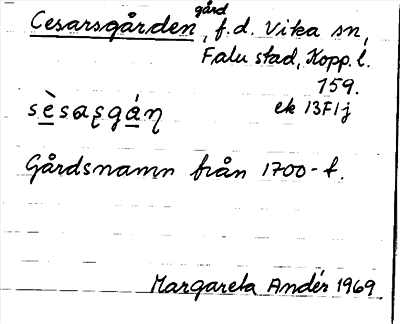 Cesarsgården, gård, f.d. Vika sn,
Falu stad, Kopp. l.
159.
ek 13F1j
sèsaʂgáɳ
Gårdsnamn från 1700-t.
Margareta Andér 1969